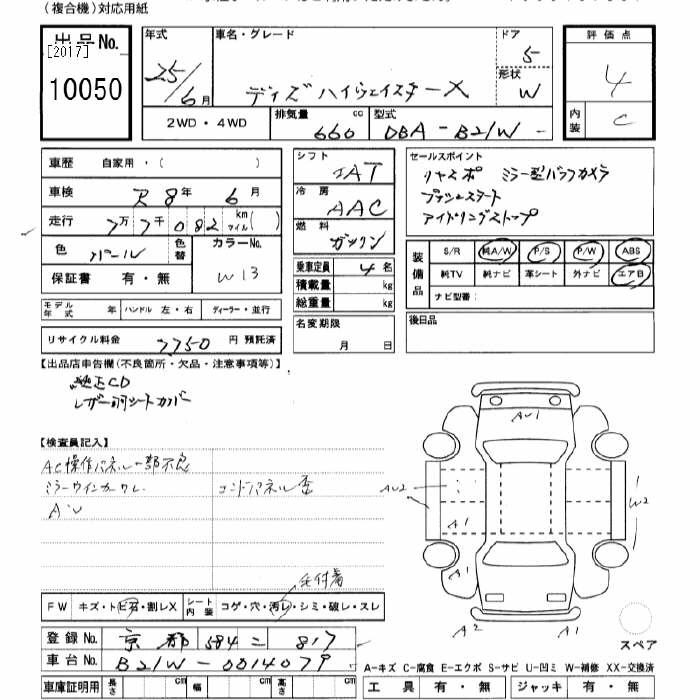 (複合機)対応用紙
出品No.
[2017]
10050
年式
25/6月
車名・グレード
デイズ ハイウェイスターX
ドア
5
形状
W
2WD・4WD
排気量 660 cc
型式 DBA-B21W-
評価点
4
内装
C
車歴 自家用・( )
車検 R8年 6月
走行 7万7千082 km マイル( )
色 パール
色替
カラーNo.
W13
保証書 有・無
モデル年式 年 ハンドル 左・右 ディーラー・並行
リサイクル料金 7750 円 預託済
シフト
IAT
冷房
AAC
燃料
ガソリン
乗車定員 4 名
積載量 kg
総重量 kg
名変期限
月 日
セールスポイント
リヤスポ ミラー型バックカメラ
プッシュスタート
アイドリングストップ
装備品
S/R 純A/W P/S P/W ABS
純TV 純ナビ 革シート 外ナビ エアB
ナビ型番:
後日品
【出品店申告欄(不良箇所・欠品・注意事項等)】
純正CD
レザー調シートカバー
【検査員記入】
AC操作パネル一部不良
ミラーウインカーワレ
コンドパネル歪
AU
毛付着
FW キズ・トビ石・割レX
シート内装 コゲ・穴・汚レ・シミ・破レ・スレ
AU1
AU2
A1
W2
A1
A2
A1
スペア
登録No. 京都 584 ニ 817
車台No. B21W-0014079
A-キズ C-腐食 E-エクボ S-サビ U-凹ミ W-補修 XX-交換済
車庫証明用 長さ cm 幅 cm 高さ cm
工具 有・無 ジャッキ 有・無